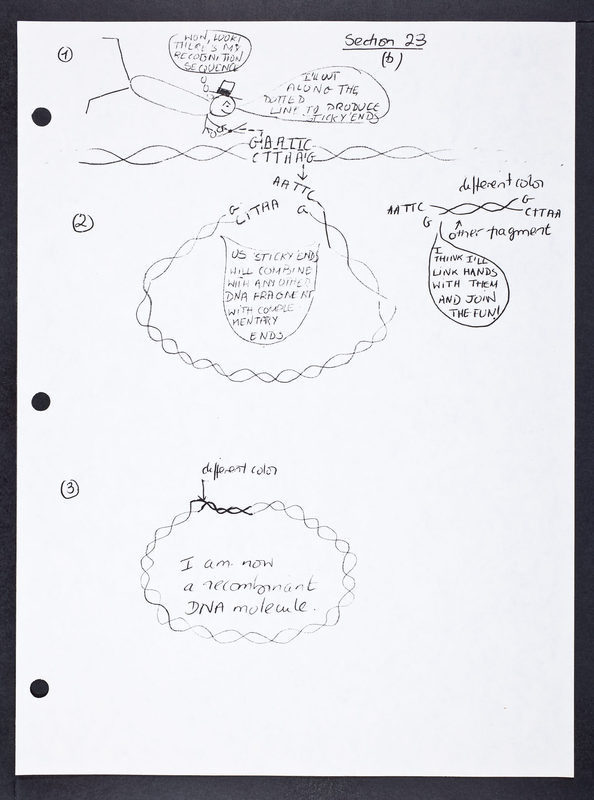 Section 23
(b)
(1)
WOW, LOOK!
THERE'S MY
RECOGNITION
SEQUENCE
I'LL CUT
ALONG THE
DOTTED
LINE TO PRODUCE
STICKY ENDS
GAATTC
CTTAAG
(2)
AATTC
G
G
CTTAA
US STICKY ENDS
WILL COMBINE
WITH ANY OTHER
DNA FRAGMENT
WITH COMPLE-
MENTARY
ENDS
different color
AATTC
G
G
CTTAA
other fragment
I
THINK I'LL
LINK HANDS
WITH THEM
AND JOIN
THE FUN!
(3)
different color
I am now
a recombinant
DNA molecule.